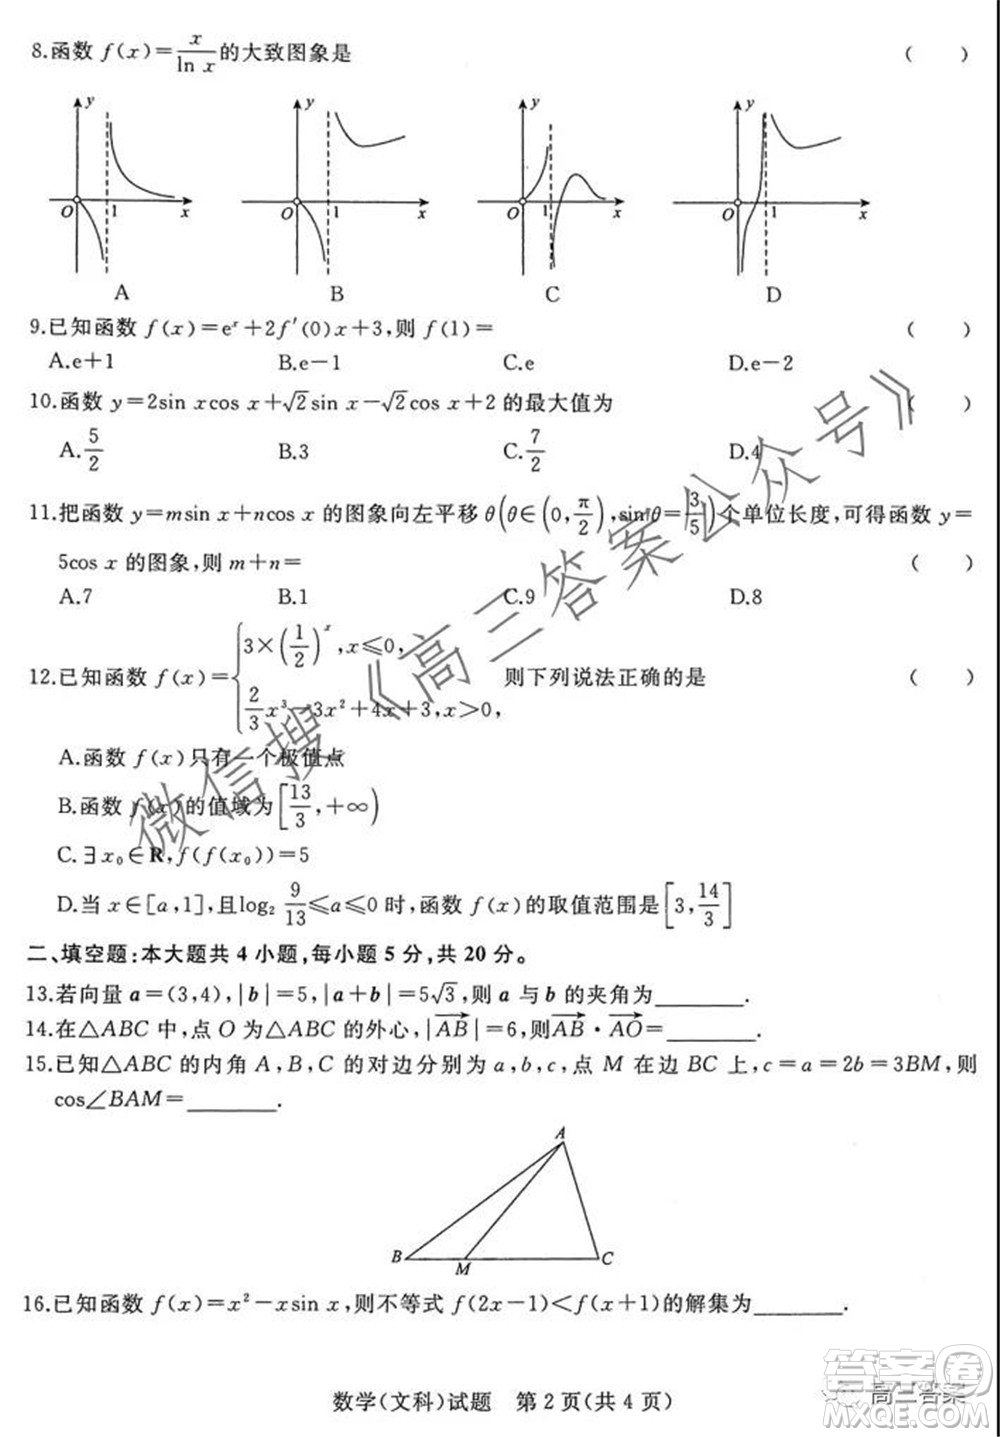 8.函数 f(x)=x/ln x 的大致图象是 (  )
y y y y
O 1 x O 1 x O 1 x O 1 x
A B C D
9.已知函数 f(x)=eˣ+2f′(0)x+3,则 f(1)= (  )
A.e+1 B.e−1 C.e D.e−2
10.函数 y=2sin xcos x+√2sin x−√2cos x+2 的最大值为 (  )
A.5/2 B.3 C.7/2 D.4
11.把函数 y=msin x+ncos x 的图象向左平移 θ(θ∈(0,π/2),sin θ=3/5)个单位长度,可得函数 y=
5cos x 的图象,则 m+n= (  )
A.7 B.1 C.9 D.8
12.已知函数 f(x)={3×(1/2)ˣ,x≤0, 2/3x³−3x²+4x+3,x>0, 则下列说法正确的是 (  )
A.函数 f(x)只有一个极值点
B.函数 f(x)的值域为[13/3,+∞)
C.∃x₀∈R,f(f(x₀))=5
D.当 x∈[a,1],且log₂ 9/13≤a≤0 时,函数 f(x)的取值范围是[3,14/3]
二、填空题:本大题共 4 小题,每小题 5 分,共 20 分。
13.若向量 a=(3,4),|b|=5,|a+b|=5√3,则 a 与 b 的夹角为________.
14.在△ABC 中,点 O 为△ABC 的外心,|AB→|=6,则AB→·AO→=________.
15.已知△ABC 的内角 A,B,C 的对边分别为 a,b,c,点 M 在边 BC 上,c=a=2b=3BM,则
cos∠BAM=________.
A
B M C
16.已知函数 f(x)=x²−xsin x,则不等式 f(2x−1)<f(x+1)的解集为________.
数学(文科)试题 第 2 页(共 4 页)
微信搜《高三答案公众号》
高三答案
答案圈
MXQE.COM